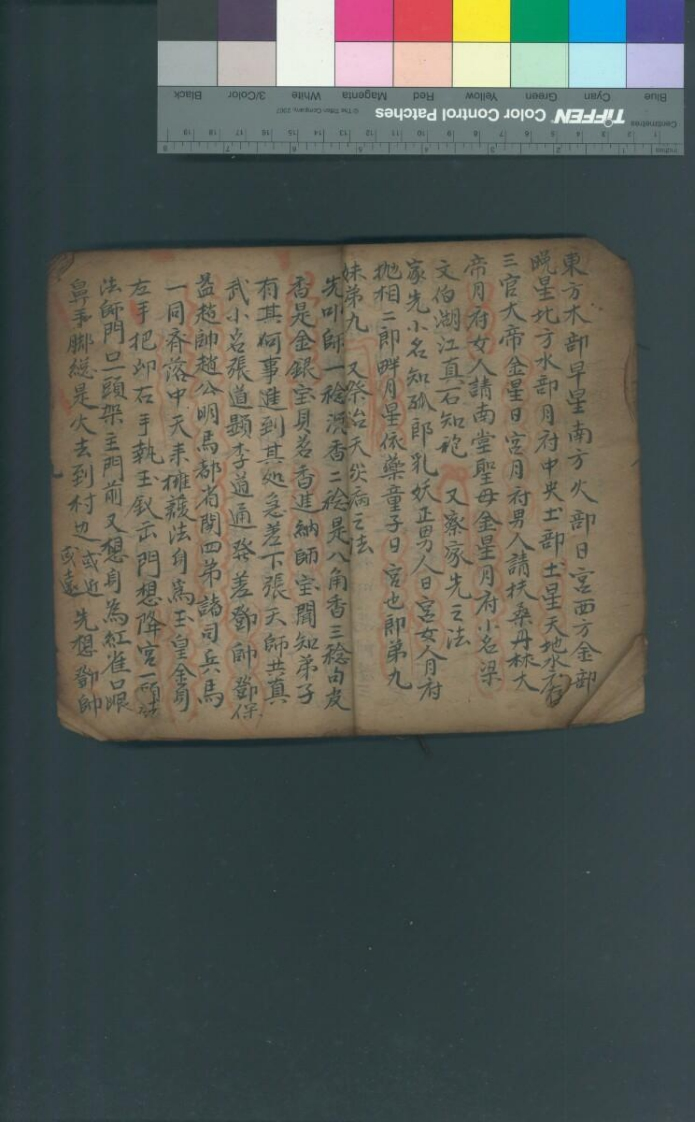 Blue Cyan Green Yellow Red Magenta White 3/Color Black
Centimetres TIFFEN Color Control Patches © The Tiffen Company, 2007
Inches
東方木部早星南方火部日宮西方金部
晚星北方水部月府中央土部土星天地水府
三官大帝金星日宮月府男人請扶桑丹林大
帝月府女人請南堂聖母金星月府小名梁
文伯湖江真石知袍 又察家先之法
家先小名知孤郎乳妖正男人日宮女人月府
抛相二郎畔月星依藥童子日宮也郎第九
妹弟九 又祭治天災病之法
先叩師一稔湏香二稔是八角香三稔由皮
香是金銀宝貝茗香進納師宝聞知弟子
有其何事進到其処急差下張天師共真
武小名張道題李道通發差鄧帥鄧保
益趙帥趙公明馬都省関四弟諸司兵馬
一同齐落中天来擁護法身為玉皇金身
左手把印右手執玉釵击門想降宮一
法師門口二頭架主門前又想身為紅雀口眼
鼻手脚縂是火去到村边或近或遠先想鄧帥